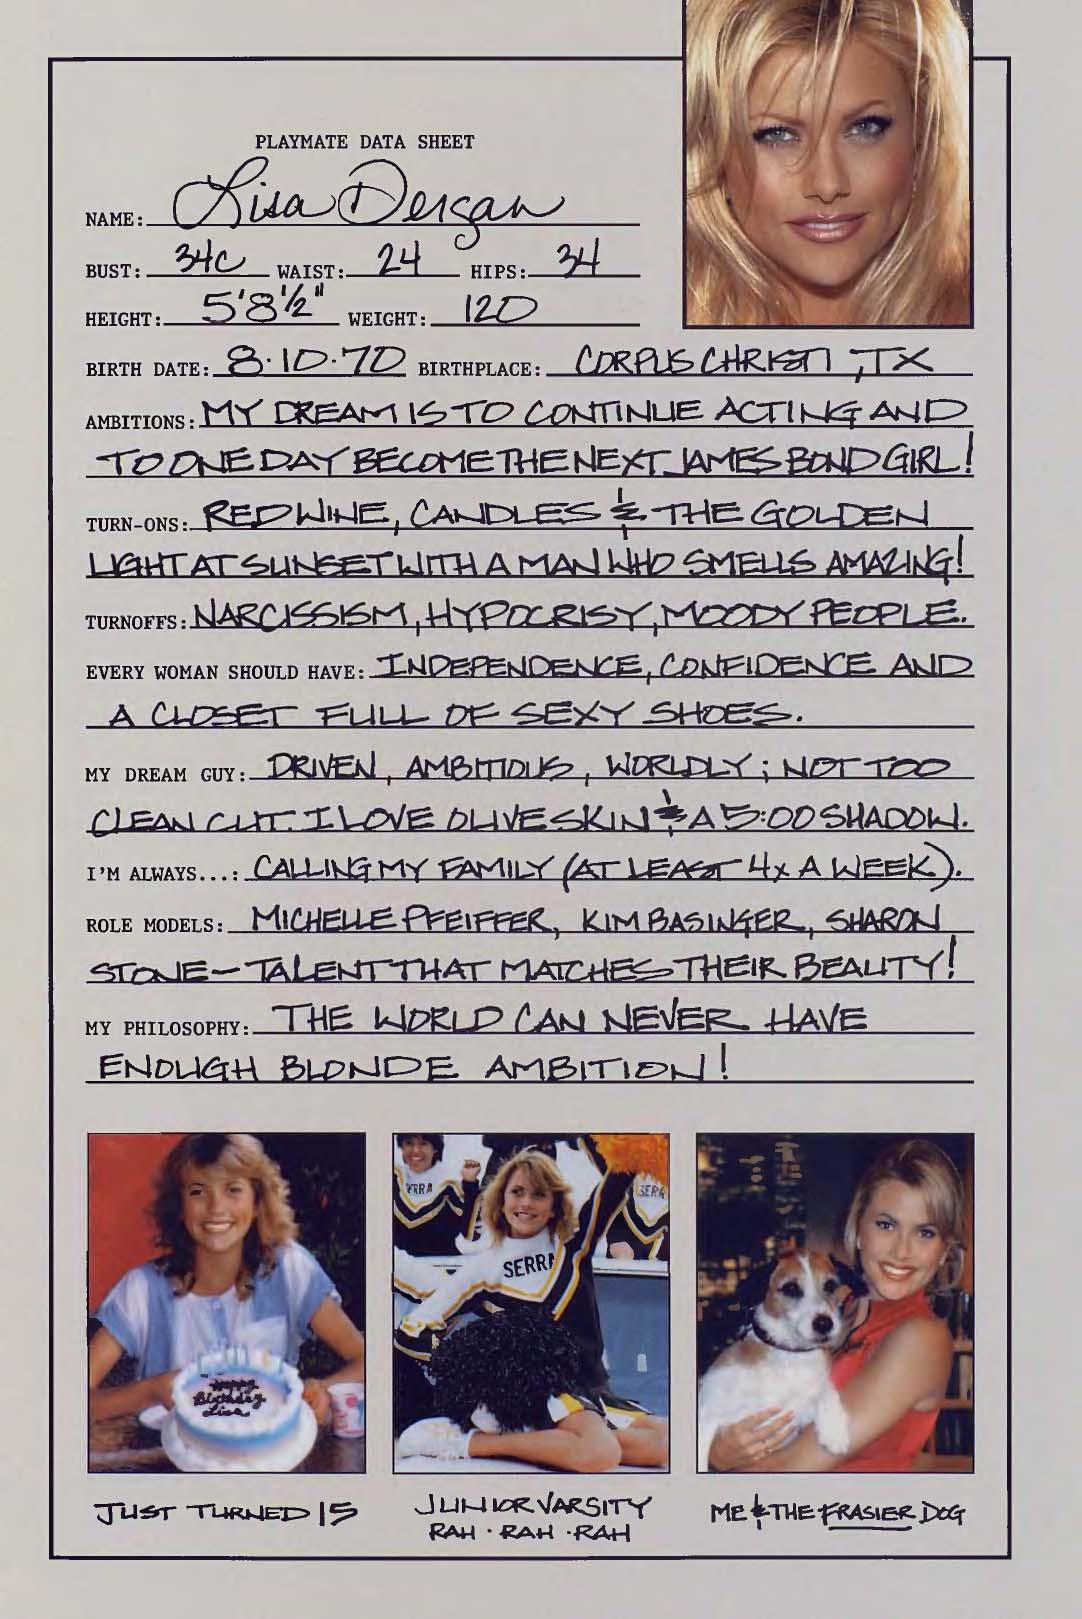 PLAYMATE DATA SHEET
NAME: Lisa Dergan
BUST: 34C WAIST: 24 HIPS: 34
HEIGHT: 5'8 1/2" WEIGHT: 120
BIRTH DATE: 8·10·70 BIRTHPLACE: CORPUS CHRISTI, TX
AMBITIONS: MY DREAM IS TO CONTINUE ACTING AND
TO ONE DAY BECOME THE NEXT JAMES BOND GIRL!
TURN-ONS: RED WINE, CANDLES & THE GOLDEN
LIGHT AT SUNSET WITH A MAN WHO SMELLS AMAZING!
TURNOFFS: NARCISSISM, HYPOCRISY, MOODY PEOPLE.
EVERY WOMAN SHOULD HAVE: INDEPENDENCE, CONFIDENCE AND
A CLOSET FULL OF SEXY SHOES.
MY DREAM GUY: DRIVEN, AMBITIOUS, WORLDLY; NOT TOO
CLEAN CUT. I LOVE OLIVE SKIN & A 5:00 SHADOW.
I'M ALWAYS...: CALLING MY FAMILY (AT LEAST 4x A WEEK).
ROLE MODELS: MICHELLE PFEIFFER, KIM BASINGER, SHARON
STONE—TALENT THAT MATCHES THEIR BEAUTY!
MY PHILOSOPHY: THE WORLD CAN NEVER HAVE
ENOUGH BLONDE AMBITION!
SERRA
SERRA
SERR
Happy
Birthday
Lisa
JUST TURNED 15
JUNIOR VARSITY
RAH · RAH · RAH
ME & THE FRASIER DOG